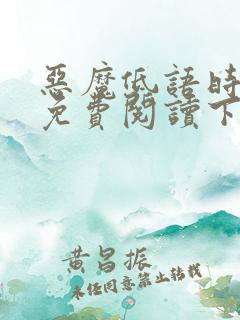 惡魔低語時
免費閱讀下
黃昌振
未经同意禁止转载